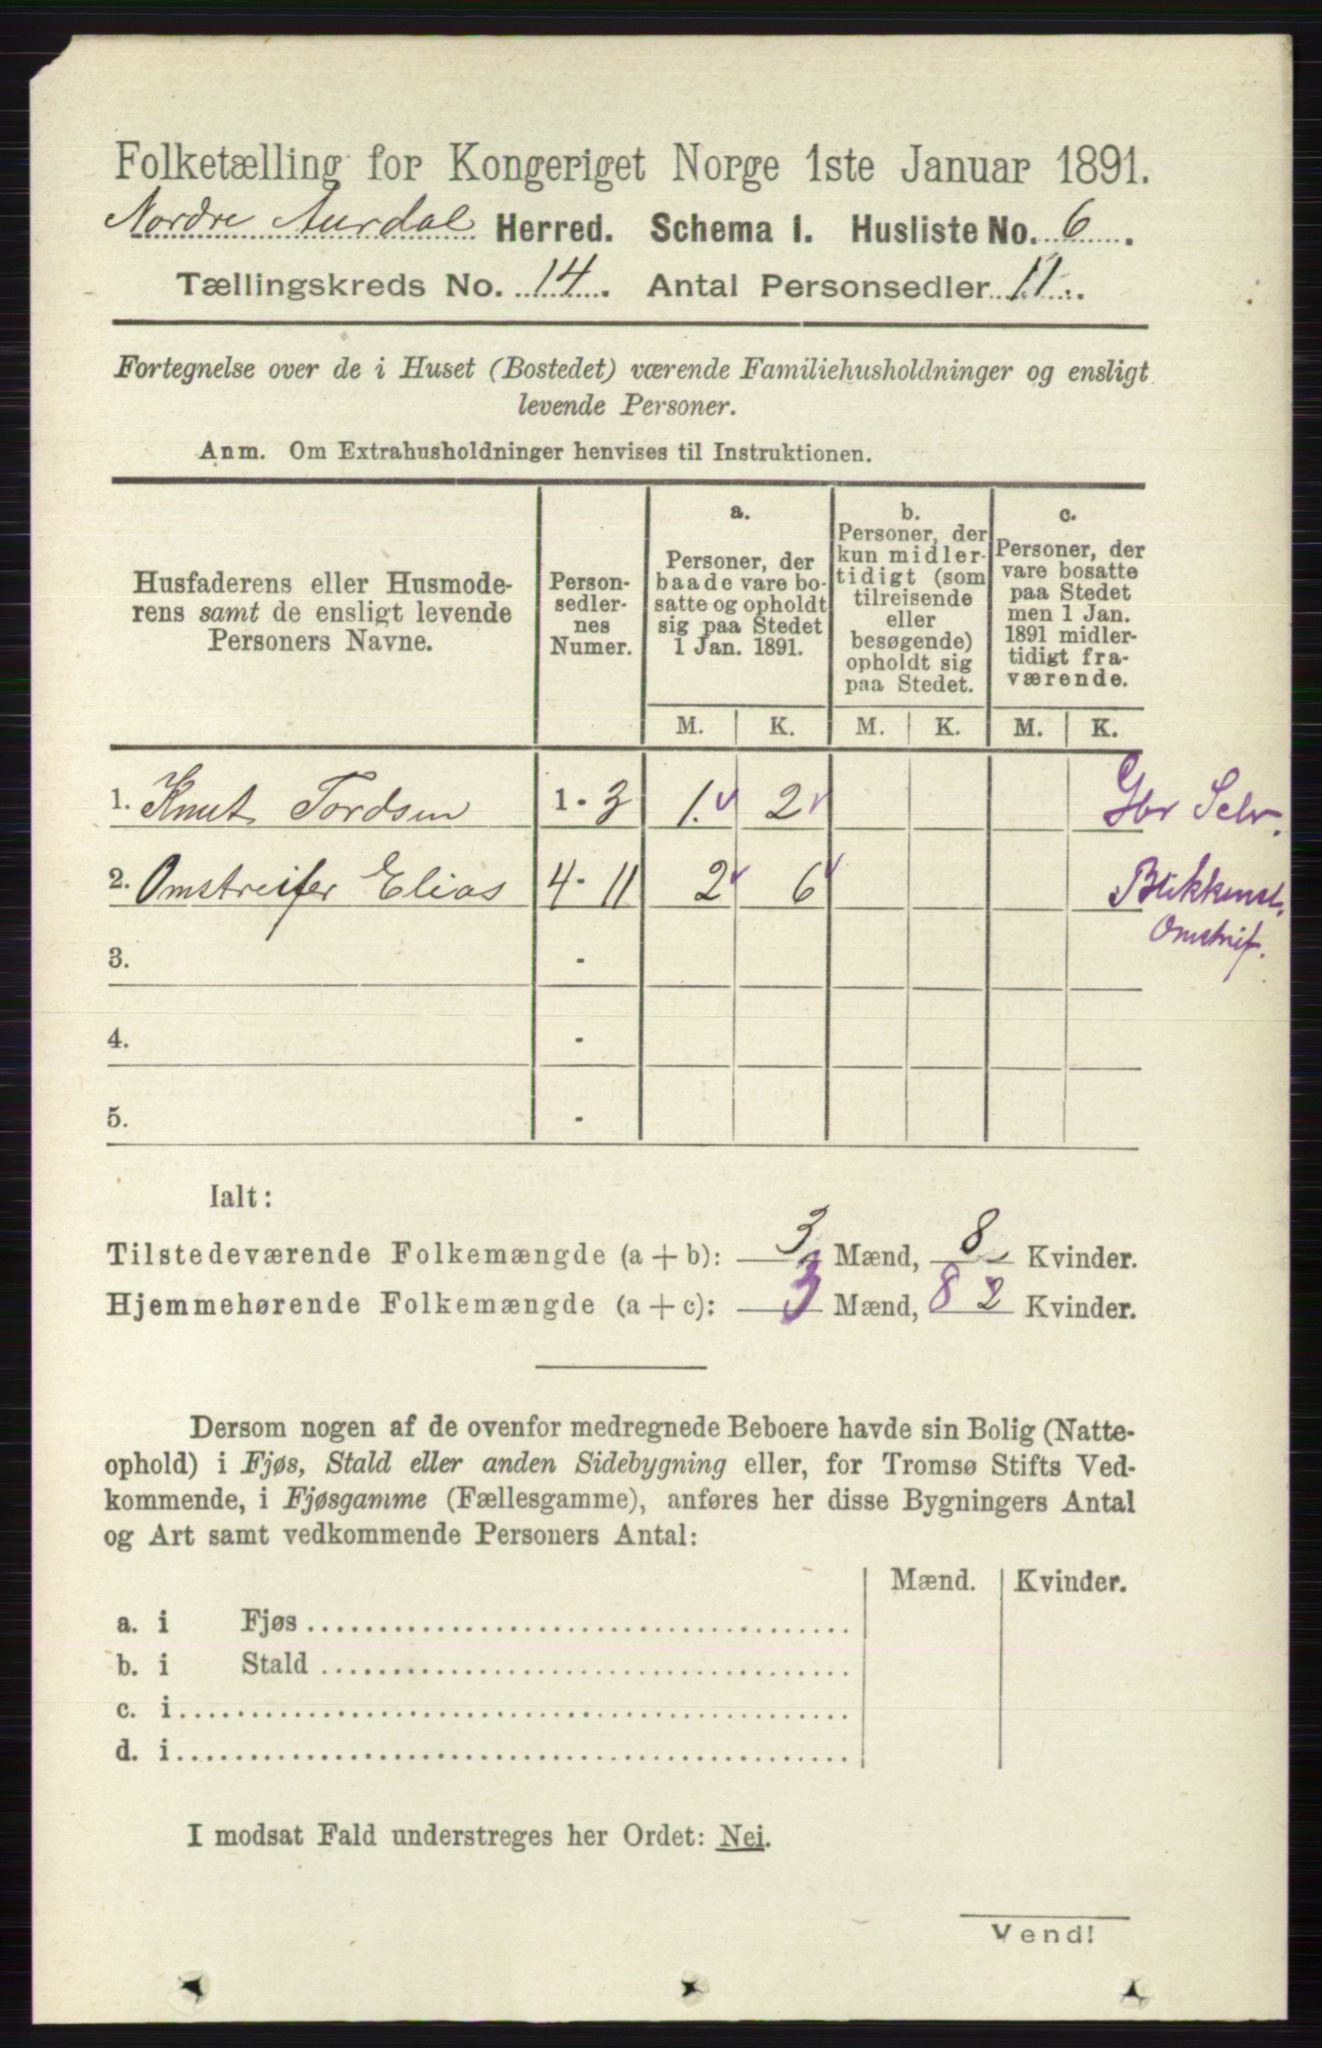 Folketælling for Kongeriget Norge 1ste Januar 1891.
Nordre Aurdal Herred. Schema I. Husliste No. 6.
Tællingskreds No. 14. Antal Personsedler 11.
Fortegnelse over de i Huset (Bostedet) værende Familiehusholdninger og ensligt
levende Personer.
Anm. Om Extrahusholdninger henvises til Instruktionen.
Husfaderens eller Husmode-
rens samt de ensligt levende
Personers Navne.
Person-
sedler-
nes
Numer.
a.
Personer, der
baade vare bo-
satte og opholdt
sig paa Stedet
1 Jan. 1891.
b.
Personer, der
kun midler-
tidigt (som
tilreisende
eller
besøgende)
opholdt sig
paa Stedet.
c.
Personer, der
vare bosatte
paa Stedet
men 1 Jan.
1891 midler-
tidigt fra-
værende.
M. K. M. K. M. K.
1. Knut Tordsen 1 - 3 1. 2 Gbr Selv.
2. Omstreifer Elias 4 - 11 2 6 Blikkensl.
Omstrif.
3. -
4. -
5. -
Ialt:
Tilstedeværende Folkemængde (a + b): 3 Mænd, 8 Kvinder.
Hjemmehørende Folkemængde (a + c): 3 Mænd, 8 2 Kvinder.
Dersom nogen af de ovenfor medregnede Beboere havde sin Bolig (Natte-
ophold) i Fjøs, Stald eller anden Sidebygning eller, for Tromsø Stifts Ved-
kommende, i Fjøsgamme (Fællesgamme), anføres her disse Bygningers Antal
og Art samt vedkommende Personers Antal:
Mænd. Kvinder.
a. i Fjøs
b. i Stald
c. i
d. i
I modsat Fald understreges her Ordet: Nei.
Vend!